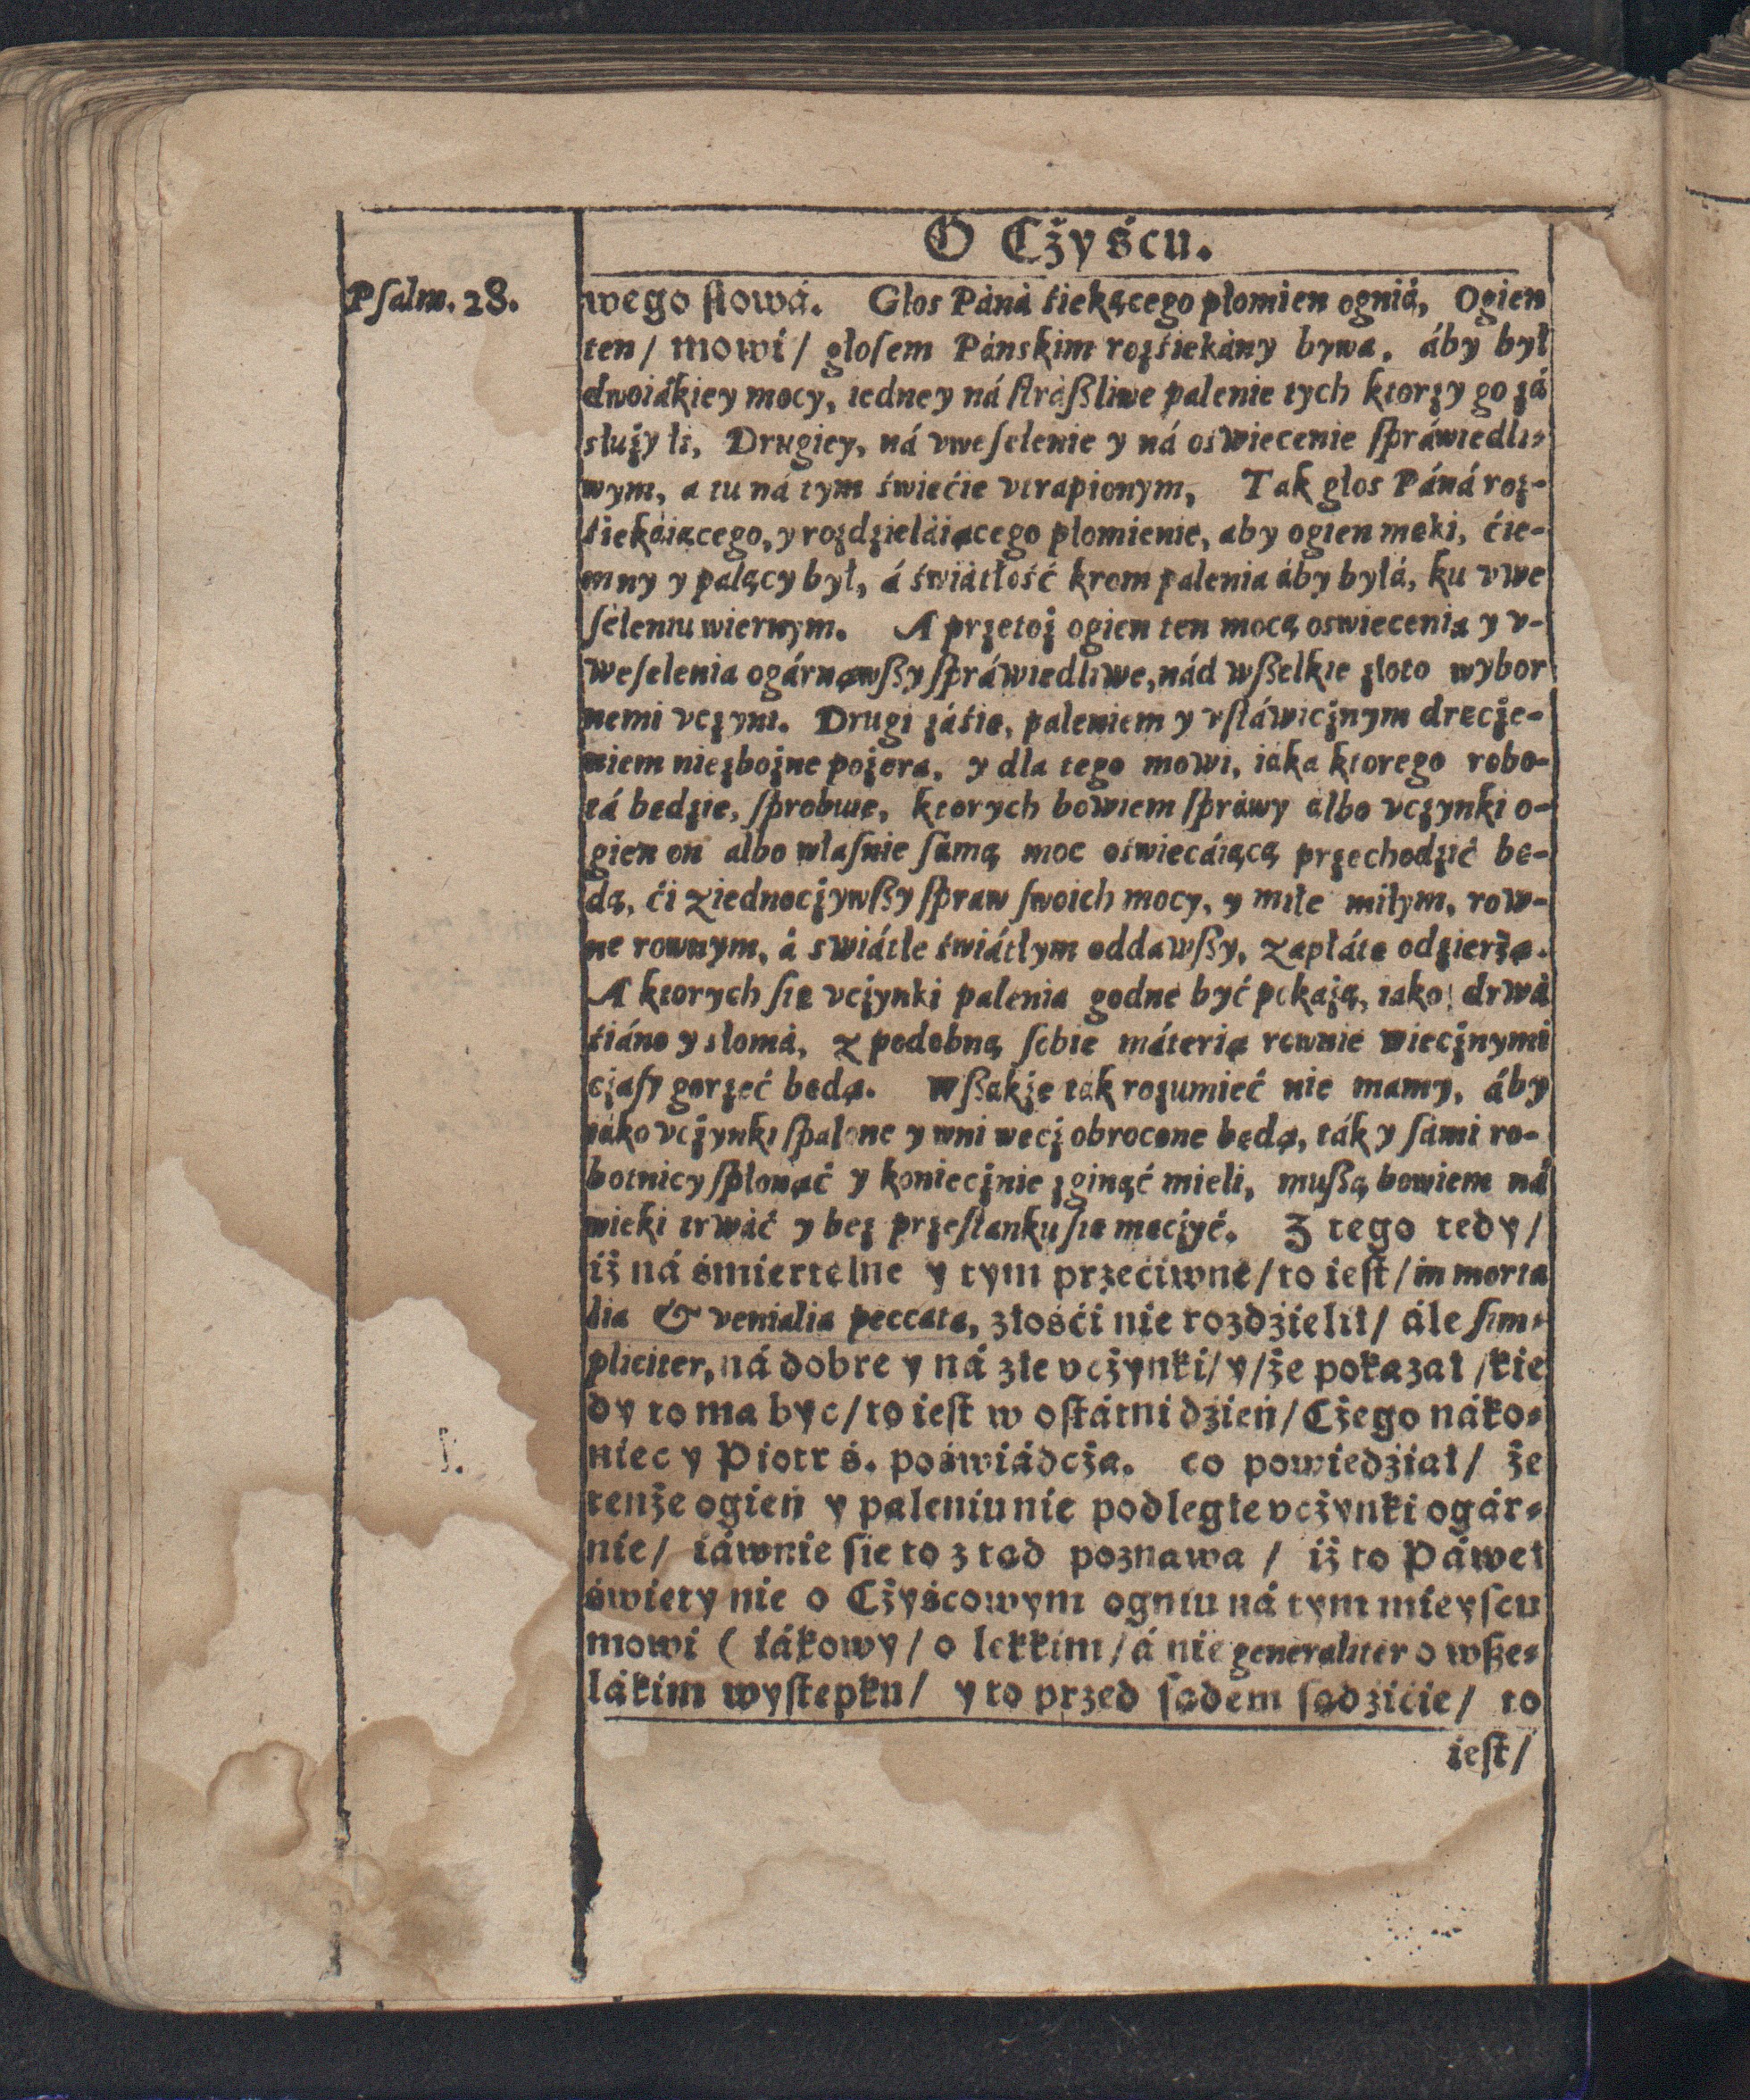 O Cżyścu.
Psalm. 28.
wego słowá. Głos Páná śiekącego płomien ogniá, Ogien
ten/ mowi/ głosem Páńskim rozśiekány bywa, áby był
dwoiákiey mocy, iedney ná strászliwe palenie tych ktorzy go zá
służyłi, Drugiey, ná vweselenie y ná oświecenie spráwiedli-
wym, a tu ná tym świećie vtrapionym, Tak głos Páná roz-
śiekáiącego, y rozdzieláiącego płomienie, aby ogien męki, ćie-
mny y palący był, á świátłość krom palenia áby byłá, ku vwe
seleniu wiernym. A przetoż ogien ten mocą oswiecenia y v-
weselenia ogárnąwszy spráwiedliwe, nád wszelkie złoto wybor
nemi vczyni. Drugi záśię, paleniem y vstáwicznym dręcze-
niem niezbożne pożera, y dla tego mowi, iáka ktorego robo-
tá będzie, sprobuie, ktorych bowiem spráwy álbo vczynki o-
gien on albo własnie sámą moc oświecáiącą przechodzić bę-
dą, ći ziednoczywszy spraw swoich mocy, y miłe miłym, row-
ne rownym, á swiátłe świátłym oddawszy, zapłátę odzierżą.
A ktorych się vczynki palenia godne być pokażą, iako drwá
śiáno y słomá, z podobną sobie máterią rownie wiecznymi
czasy gorzeć będą. Wszakże ták rozumieć nie mamy, áby
iáko vczynki spalone y wni wecz obrocone będą, ták y sámi ro-
botnicy spłonąć y koniecznie zginąć mieli, muszą bowiem ná
wieki trwáć y bez przestanku się męczyć. Z tego tedy/
iż ná śmiertelne y tym przećiwne/ to iest/ in morta
lia & venialia peccata, złośći nie rozdźielił/ ále sim-
pliciter, ná dobre y ná złe vcżynki/ y/ że pokazał /kie
dy to ma być/ to iest w ostátni dźień/ Cżego náko-
niec y Piotr ś. poświádcża. co powiedźiał/ że
tenże ogień y paleniu nie podległe vcżynki ogár-
nie/ iáwnie się to z tąd poznawa/ iż to Páweł
święty nie o Cżyścowym ogniu ná tym mieyscu
mowi (iákowy/ o lekkim/ á nie generaliter o wsze-
lákim występku/ y to przed sądem sądźićie/ to
iest/